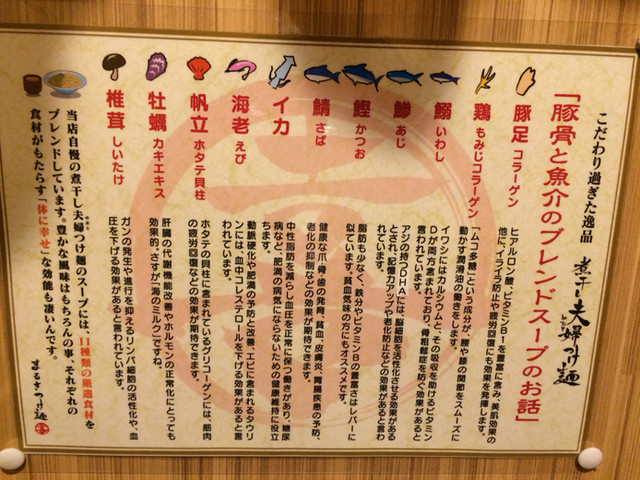 こだわり過ぎた逸品 煮干し夫婦つけ麺
「豚骨と魚介のブレンドスープのお話」
豚足 コラーゲン
ヒアルロン酸、ビタミンB1を豊富に含み、美肌効果の
他に、イライラ防止や疲労回復にも効果を発揮します。
鶏 もみじコラーゲン
「ムコ多糖」という成分が、腰や膝の関節をスムーズに
動かす潤滑油の働きをします。
鰯 いわし
イワシにはカルシウムと、その吸収を助けるビタミン
Dが両方含まれており、骨粗鬆症を防ぐ効果があると
言われています。
鯵 あじ
アジの持つDHAには、脳細胞を活性化させる効果がある
とされ、記憶力アップや老化防止などの効果があると言わ
れています。
鰹 かつお
脂肪も少なく、鉄分やビタミンBの豊富さはレバーに
似ています。貧血気味の方にもオススメです。
鯖 さば
健康な爪・骨・歯の発育、貧血、皮膚炎、胃腸疾患の予防、
老化の抑制などの効果が期待できます。
イカ
中性脂肪を減らし血圧を正常に保つ働きがあり、糖尿
病など、肥満の病気にならないための健康維持に役立
ちます。
海老 えび
動脈硬化や肥満の予防と改善、エビに含まれるタウリ
ンには、血中コレステロールを下げる効果があると言
われています。
帆立 ホタテ貝柱
ホタテの貝柱に含まれているグリコーゲンには、筋肉
の疲労回復などの効果が期待できます。
牡蠣 カキエキス
肝臓の代謝機能改善やホルモンの正常化にとっても
効果的。さすが「海のミルク」ですね。
椎茸 しいたけ
ガンの発生や進行を抑えるリンパ細胞の活性化や、血
圧を下げる効果があると言われています。
当店自慢の煮干し夫婦つけ麺のスープには、11種類の厳選食材を
ブレンドしています。豊かな風味はもちろんの事、それぞれの
食材がもたらす「体に幸せ」な効能も凄いんです。
まるきつけ麺